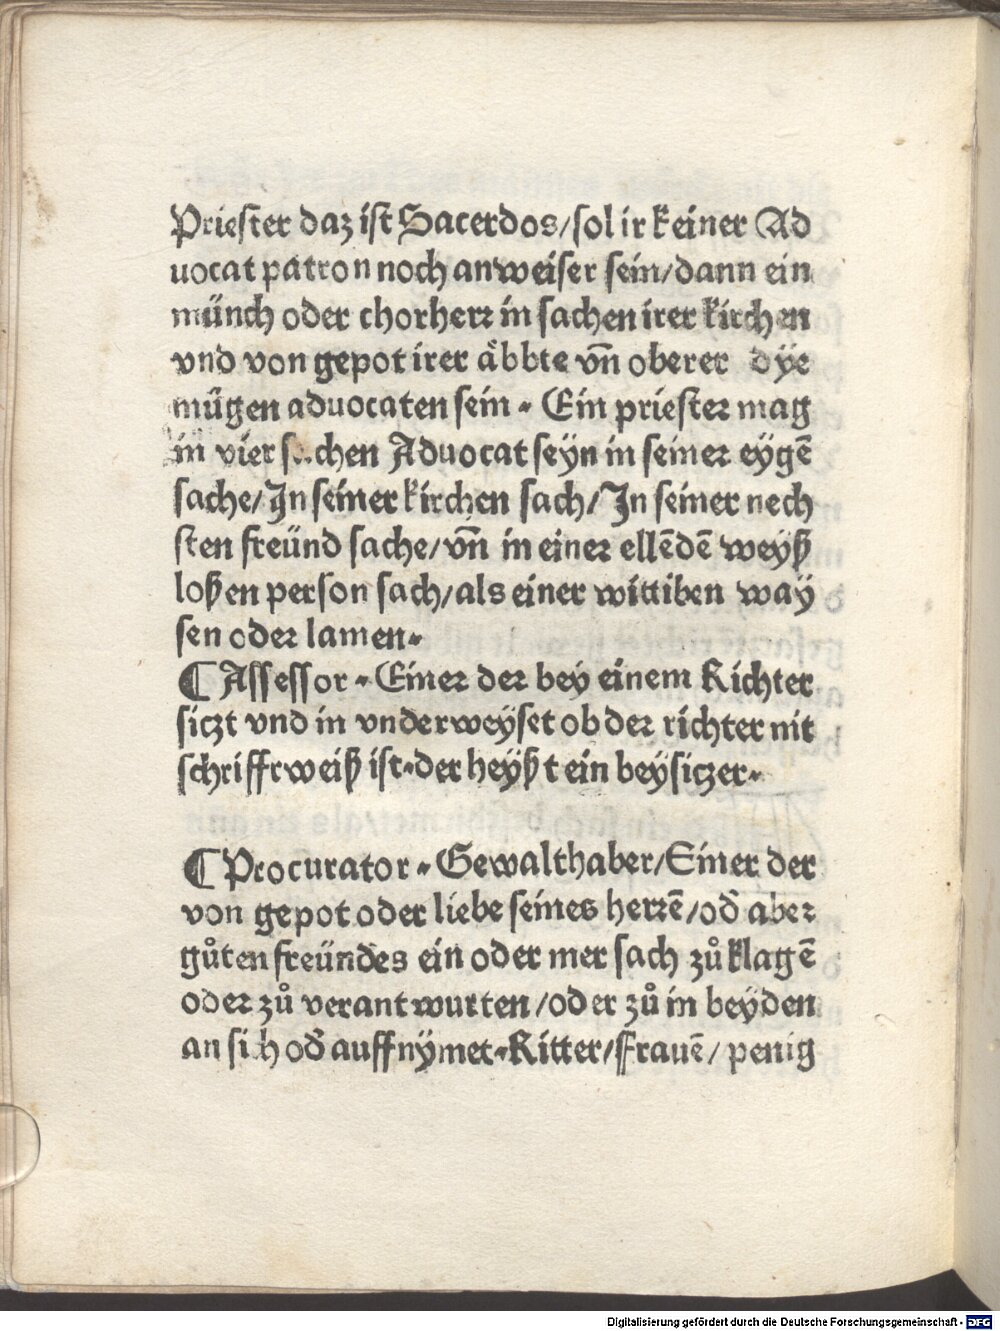 Priester daz ist Sacerdos/sol ir keiner Ad
uocat patron noch anweiser sein/dann ein
münch oder chorherꝛ in sachen irer kirchen
vnd von gepot irer äbbte vn̄ oberer dÿe
mügen aduocaten sein. Ein priesteꝛ mag
in vier sachen Aduocat seÿn in seineꝛ eÿgē
sache/In seiner kirchen sach/In seiner nech
sten freünd sache/vn̄ in eineꝛ ellēdē weÿß
loßen person sach/als einer wittiben waÿ
sen odeꝛ lamen.
¶ Assessor. Eineꝛ deꝛ beÿ einem Richter
siczt vnd in vnderweÿset ob deꝛ richter nit
schrifftweiß ist.der heÿßt ein beÿsiczer.
¶ Procurator. Gewalthaber/Einer der
von gepot oder liebe seines herꝛē/od̄ abeꝛ
gůten freündes ein oder mer sach zů klagē
odeꝛ zů verantwurten/oder zů in beÿden
an sich od̄ auffnÿmet.Ritter/frauē/penig
Digitalisierung gefördert durch die Deutsche Forschungsgemeinschaft - DFG